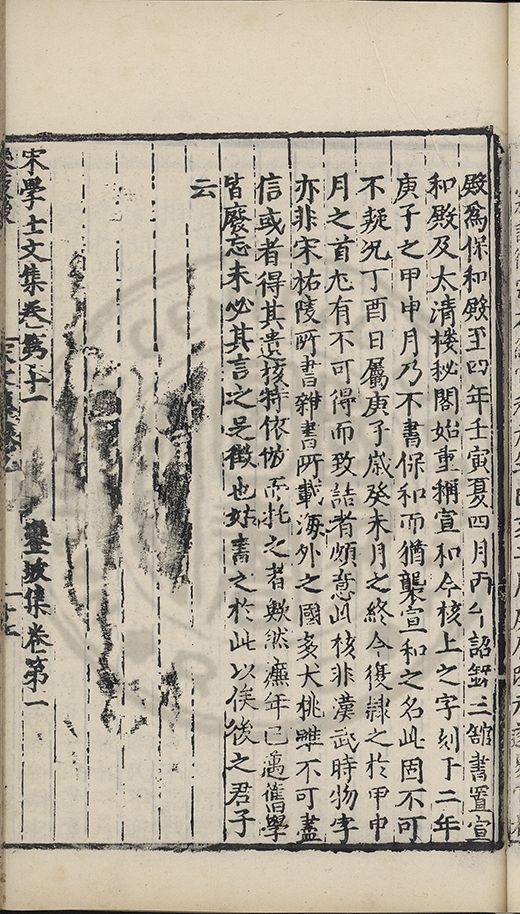 殿爲保和殿至四年壬寅夏四月丙午詔錄三館書置宣
和殿及太清樓秘閣始重稱宣和今核上之字刻于二年
庚子之甲申月乃不書保和而猶襲宣和之名此固不可
不疑况丁酉日屬庚子歲癸未月之終今復隸之於甲申
月之首尤有不可得而致詰者頗意此核非漢武時物字
亦非宋祐陵所書雜書所載海外之國多大桃雖不可盡
信或者得其遺核特依倣而托之者歟然濂年已邁舊學
皆廢忘未必其言之足徵也姑書之於此以俟後之君子
云
宋學士文集卷第十一 鑾坡集卷第一